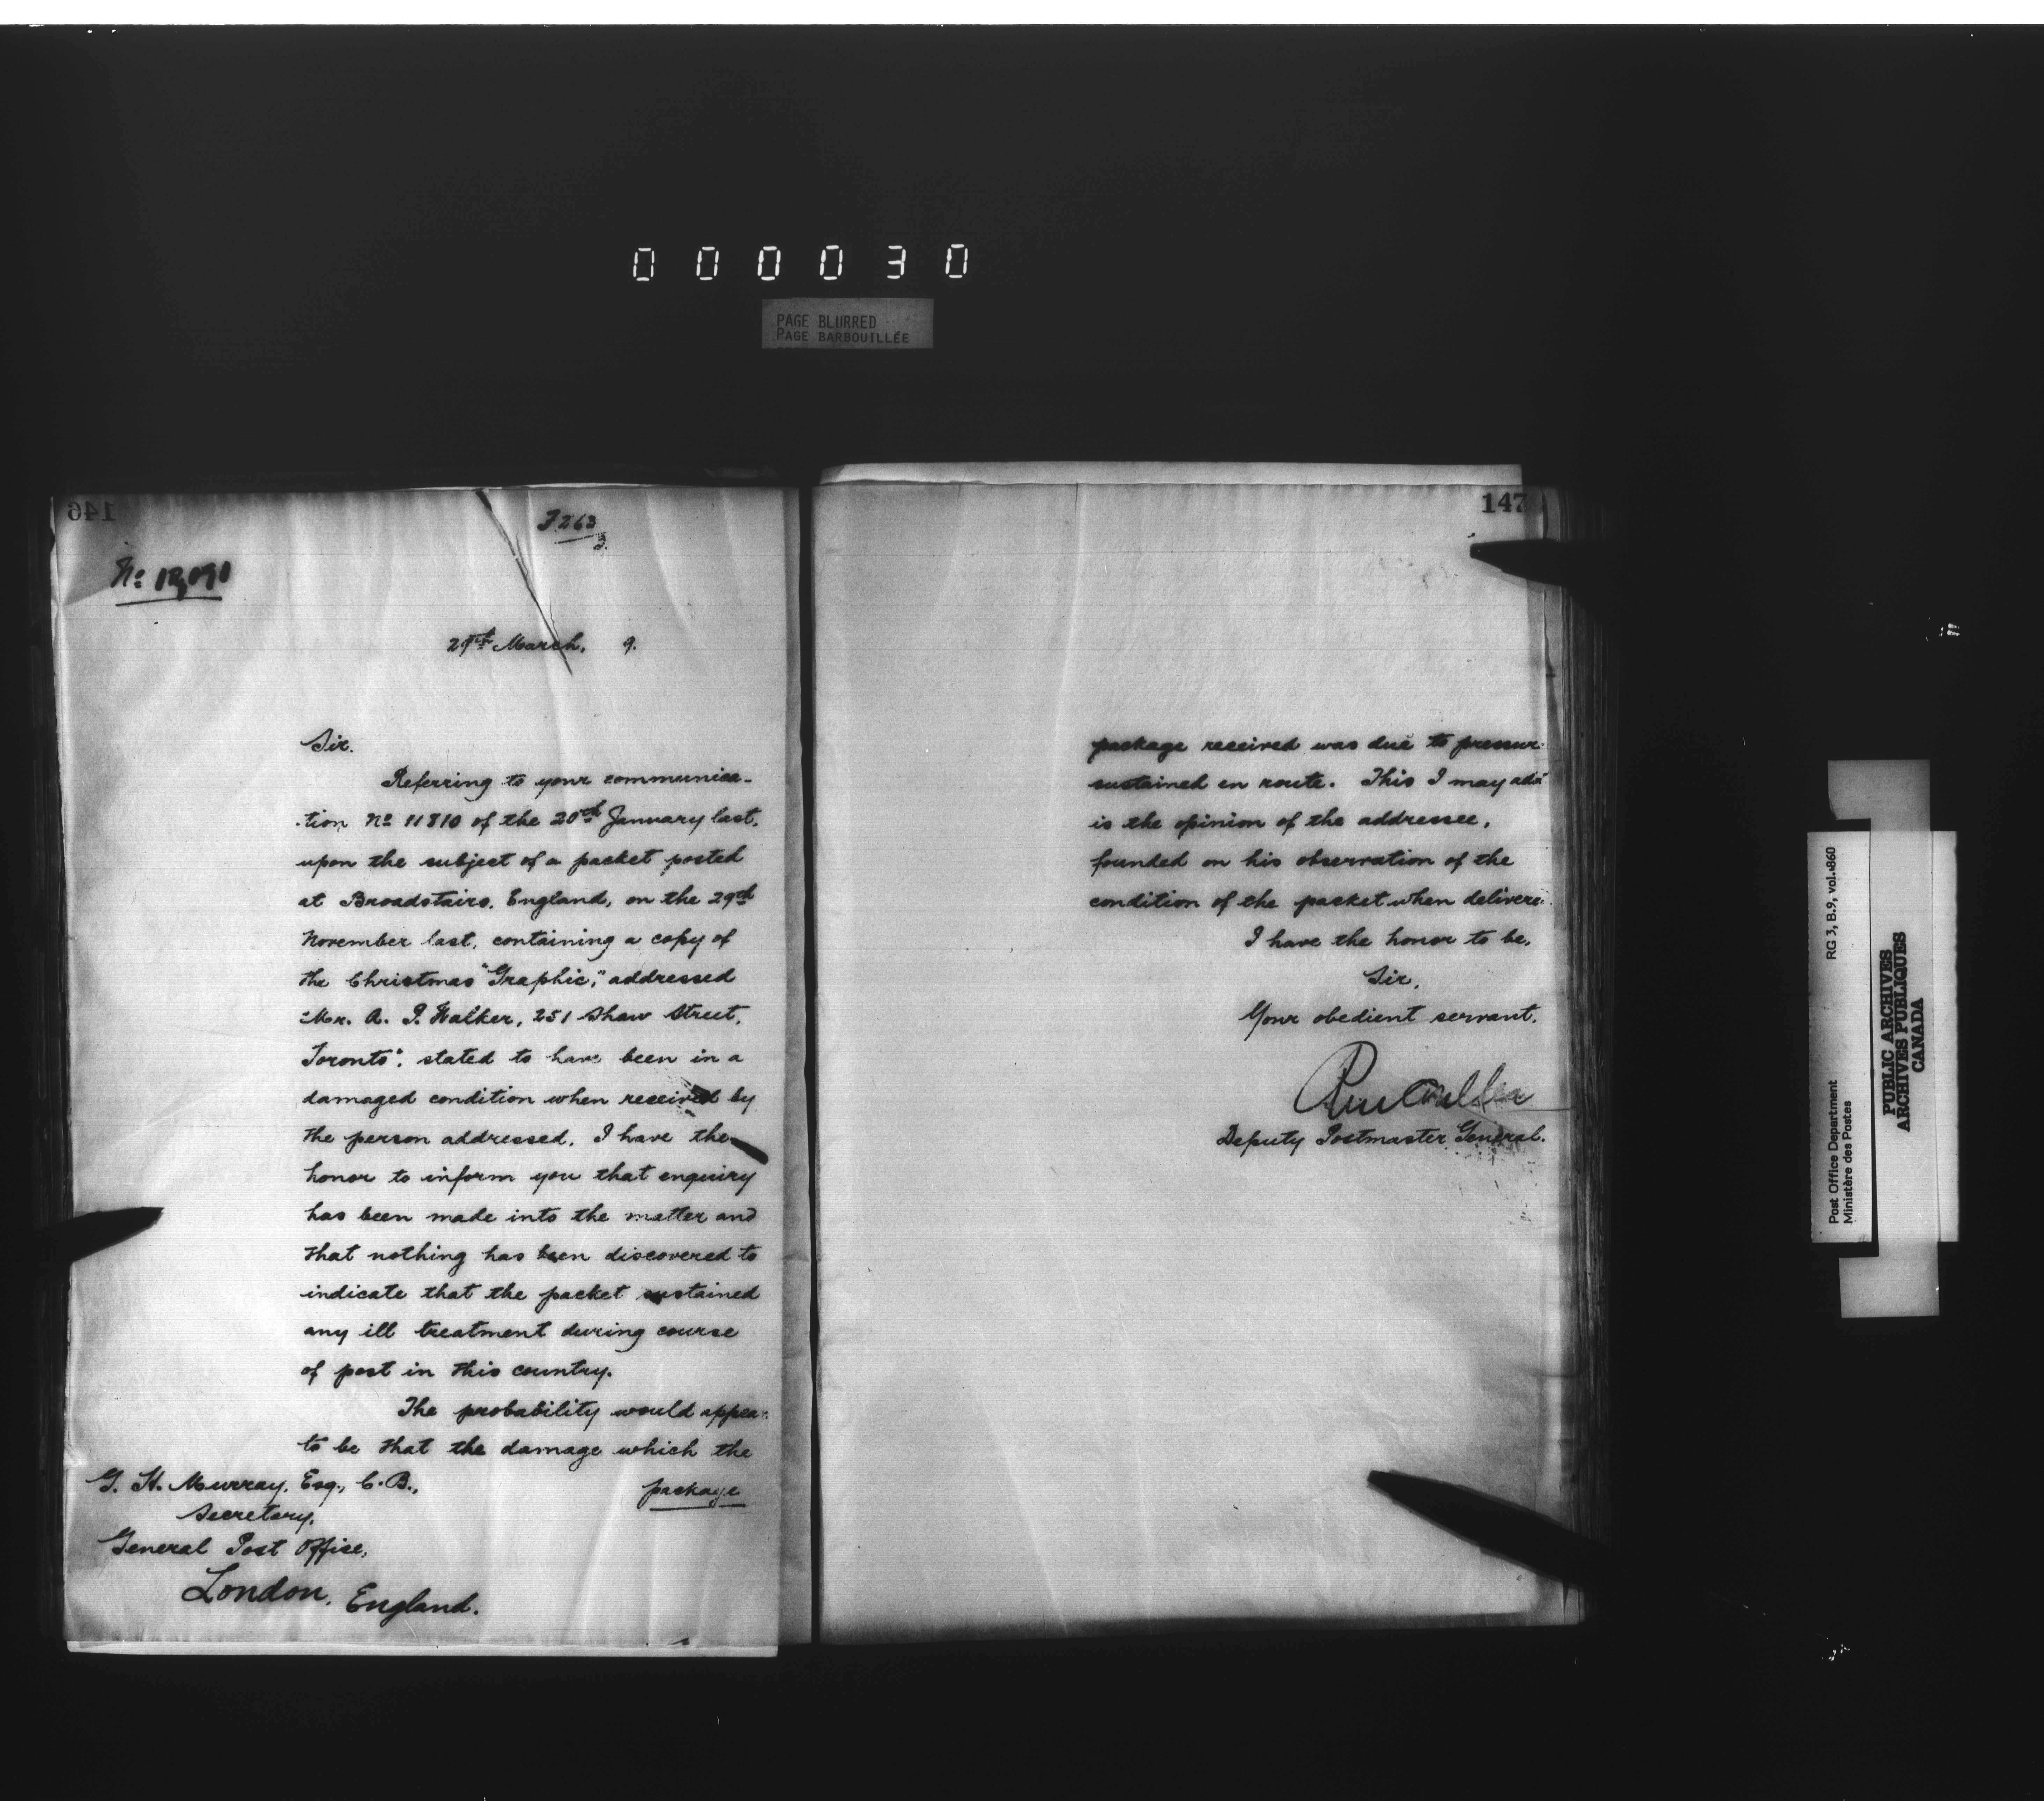 000030
PAGE BLURRED
PAGE BARBOUILLÉE
146
No 12,091
29th March, 9.
Sir.
Referring to your communica-
tion No 11810 of the 20th January last,
upon the subject of a packet posted
at Broadstairs, England, on the 29th
November last, containing a copy of
the Christmas "Graphic," addressed
"Mr. A. P. Walker, 251 Shaw Street,
Toronto", stated to have been in a
damaged condition when received by
the person addressed, I have the
honor to inform you that enquiry
has been made into the matter and
that nothing has been discovered to
indicate that the packet sustained
any ill treatment during course
of post in this country.
The probability would appea
to be that the damage which the
package
G. H. Murray, Esq., C.B.,
Secretary,
General Post Office,
London, England.
147
package received was due to pressur
sustained en route. This I may add
is the opinion of the addressee,
founded on his observation of the
condition of the packet when delivere
I have the honor to be,
Sir,
Your obedient servant,
Deputy Postmaster General.
Post Office Department
Ministère des Postes
RG 3, B.9, vol. 860
PUBLIC ARCHIVES
ARCHIVES PUBLIQUES
CANADA